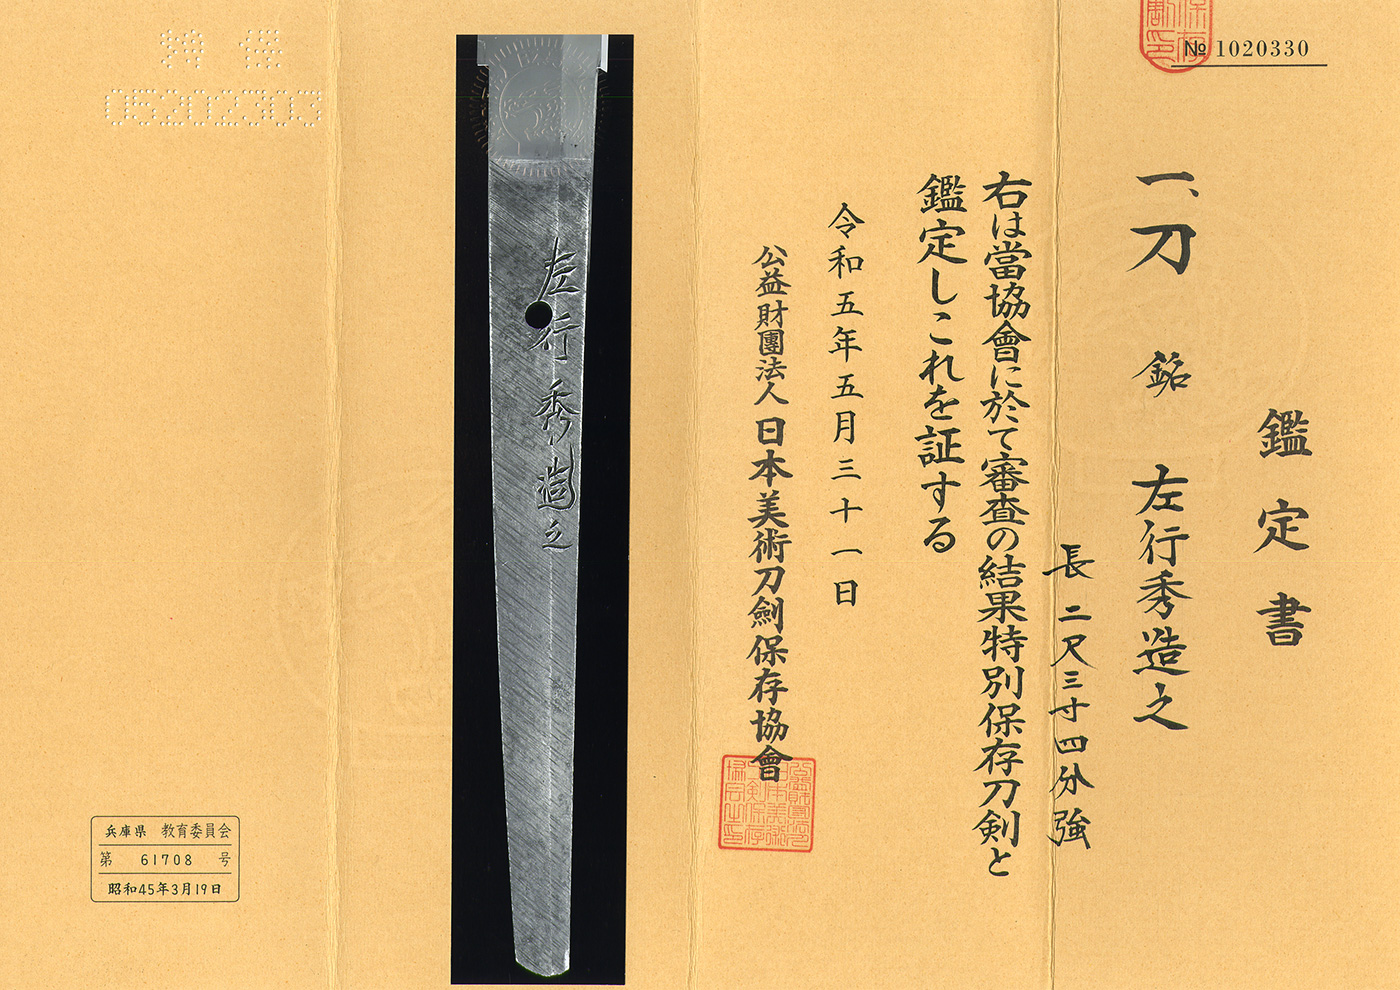 № 1020330
鑑定書
一、刀 銘 左行秀造之
長 二尺三寸四分強
右は當協會に於て審査の結果特別保存刀剣と
鑑定しこれを証する
令和五年五月三十一日
公益財團法人 日本美術刀劍保存協會
左行秀造之
特保
05202303
兵庫県 教育委員会
第 61708 号
昭和45年3月19日